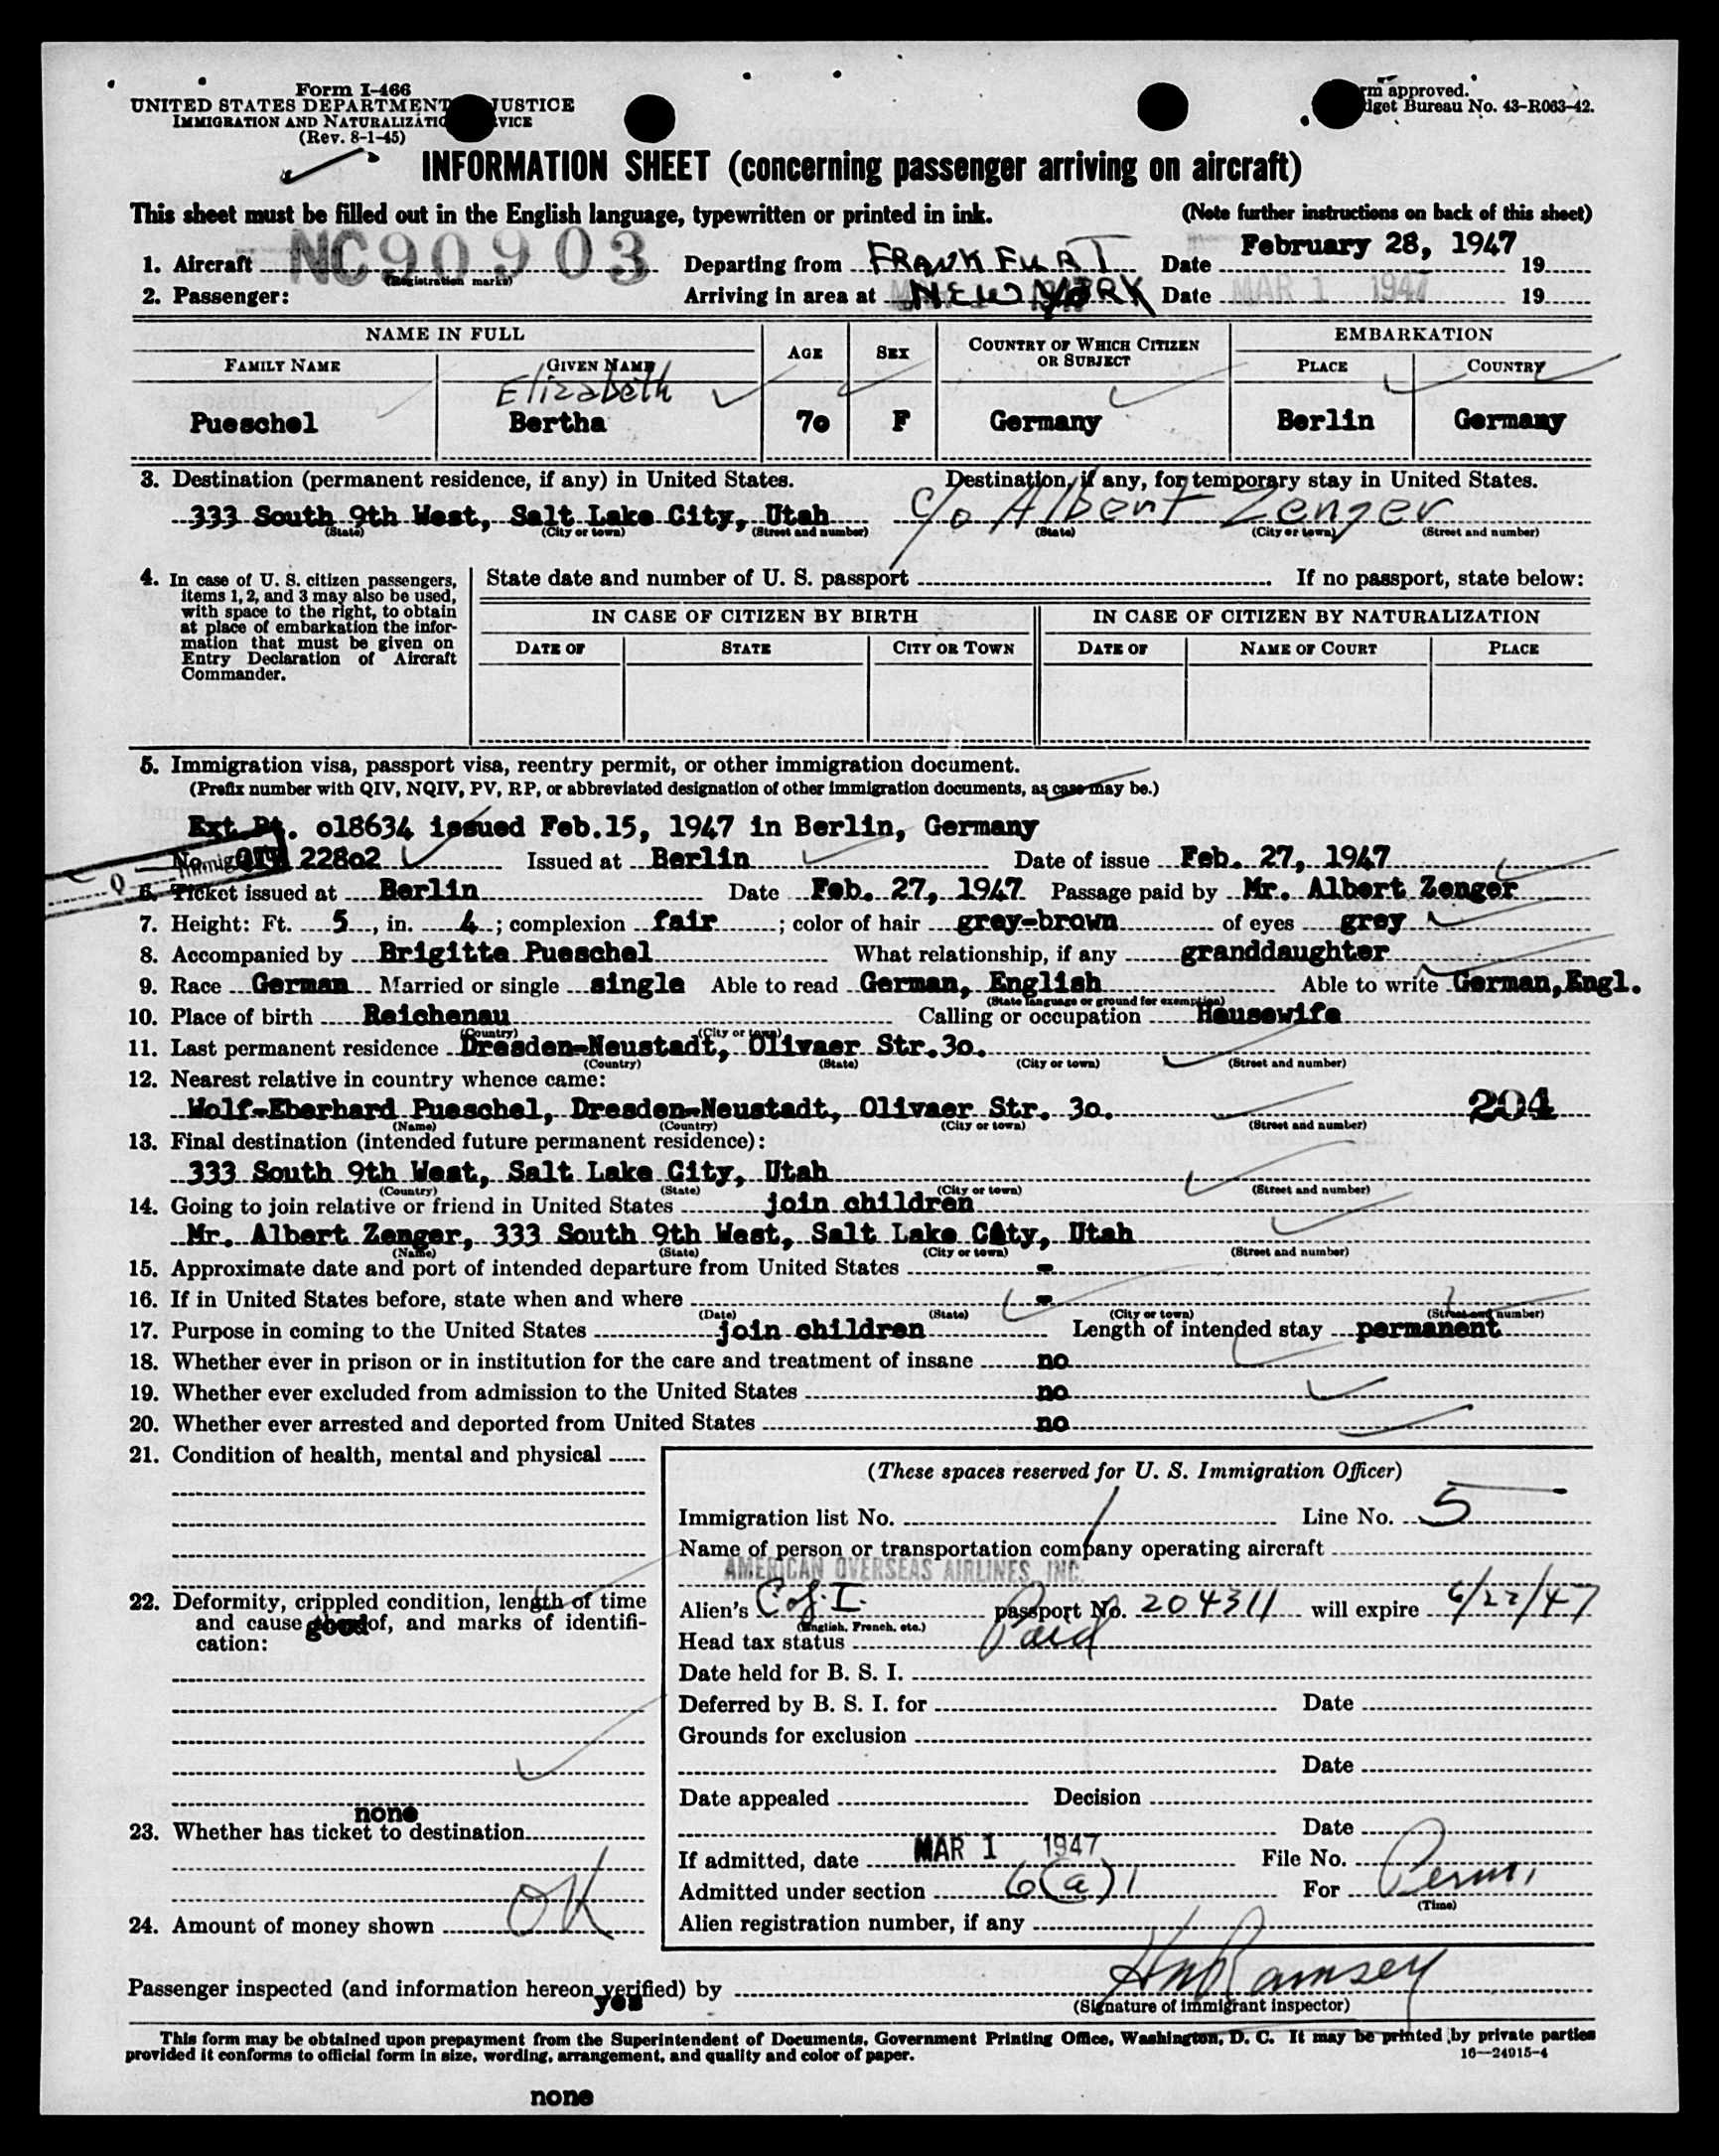 Form I-466
UNITED STATES DEPARTMENT JUSTICE
IMMIGRATION AND NATURALIZATIO VICE
(Rev. 8-1-45)
rm approved.
dget Bureau No. 43-R063-42.
INFORMATION SHEET (concerning passenger arriving on aircraft)
This sheet must be filled out in the English language, typewritten or printed in ink. (Note further instructions on back of this sheet)
1. Aircraft NC90903 Departing from FRANKFURT Date February 28, 1947 19
(Registration marks)
2. Passenger: Arriving in area at NEW YORK Date MAR 1 1947 19
NAME IN FULL AGE SEX COUNTRY OF WHICH CITIZEN OR SUBJECT EMBARKATION
FAMILY NAME GIVEN NAME PLACE COUNTRY
Elizabeth
Pueschel Bertha 70 F Germany Berlin Germany
3. Destination (permanent residence, if any) in United States. Destination, if any, for temporary stay in United States.
333 South 9th West, Salt Lake City, Utah c/o Albert Zenger
(State) (City or town) (Street and number) (State) (City or town) (Street and number)
4. In case of U. S. citizen passengers, items 1, 2, and 3 may also be used, with space to the right, to obtain at place of embarkation the information that must be given on Entry Declaration of Aircraft Commander.
State date and number of U. S. passport If no passport, state below:
IN CASE OF CITIZEN BY BIRTH IN CASE OF CITIZEN BY NATURALIZATION
DATE OF STATE CITY OR TOWN DATE OF NAME OF COURT PLACE
5. Immigration visa, passport visa, reentry permit, or other immigration document.
(Prefix number with QIV, NQIV, PV, RP, or abbreviated designation of other immigration documents, as case may be.)
Ext. Pt. o18634 issued Feb.15, 1947 in Berlin, Germany
No. 228o2 Issued at Berlin Date of issue Feb. 27, 1947
6. Ticket issued at Berlin Date Feb. 27, 1947 Passage paid by Mr. Albert Zenger
7. Height: Ft. 5, in. 4; complexion fair; color of hair grey-brown of eyes grey
8. Accompanied by Brigitte Pueschel What relationship, if any granddaughter
9. Race German Married or single single Able to read German, English Able to write German,Engl.
(State language or ground for exemption)
10. Place of birth Reichenau Calling or occupation Housewife
(Country) (City or town)
11. Last permanent residence Dresden-Neustadt, Olivaer Str.3o.
(Country) (State) (City or town) (Street and number)
12. Nearest relative in country whence came:
Wolf-Eberhard Pueschel, Dresden-Neustadt, Olivaer Str. 3o. 204
(Name) (Country) (City or town) (Street and number)
13. Final destination (intended future permanent residence):
333 South 9th West, Salt Lake City, Utah
(Country) (State) (City or town) (Street and number)
14. Going to join relative or friend in United States join children
Mr. Albert Zenger, 333 South 9th West, Salt Lake City, Utah
(Name) (State) (City or town) (Street and number)
15. Approximate date and port of intended departure from United States -
16. If in United States before, state when and where -
(Date) (State) (City or town) (Street and number)
17. Purpose in coming to the United States join children Length of intended stay permanent
18. Whether ever in prison or in institution for the care and treatment of insane no
19. Whether ever excluded from admission to the United States no
20. Whether ever arrested and deported from United States no
21. Condition of health, mental and physical
22. Deformity, crippled condition, length of time
and cause good of, and marks of identifi-
cation:
none
23. Whether has ticket to destination
24. Amount of money shown OK
(These spaces reserved for U. S. Immigration Officer)
Immigration list No. 1 Line No. 5
Name of person or transportation company operating aircraft
AMERICAN OVERSEAS AIRLINES, INC.
Alien's C of I. passport No. 204311 will expire 6/27/47
(English, French, etc.)
Head tax status Paid
Date held for B. S. I.
Deferred by B. S. I. for Date
Grounds for exclusion
Date
Date appealed Decision
Date
If admitted, date MAR 1 1947 File No.
Admitted under section 6(a)1 For Perm.
(Time)
Alien registration number, if any
Passenger inspected (and information hereon verified) by Ramsey
yes
(Signature of immigrant inspector)
This form may be obtained upon prepayment from the Superintendent of Documents, Government Printing Office, Washington, D. C. It may be printed by private parties
provided it conforms to official form in size, wording, arrangement, and quality and color of paper. 16—24915-4
none